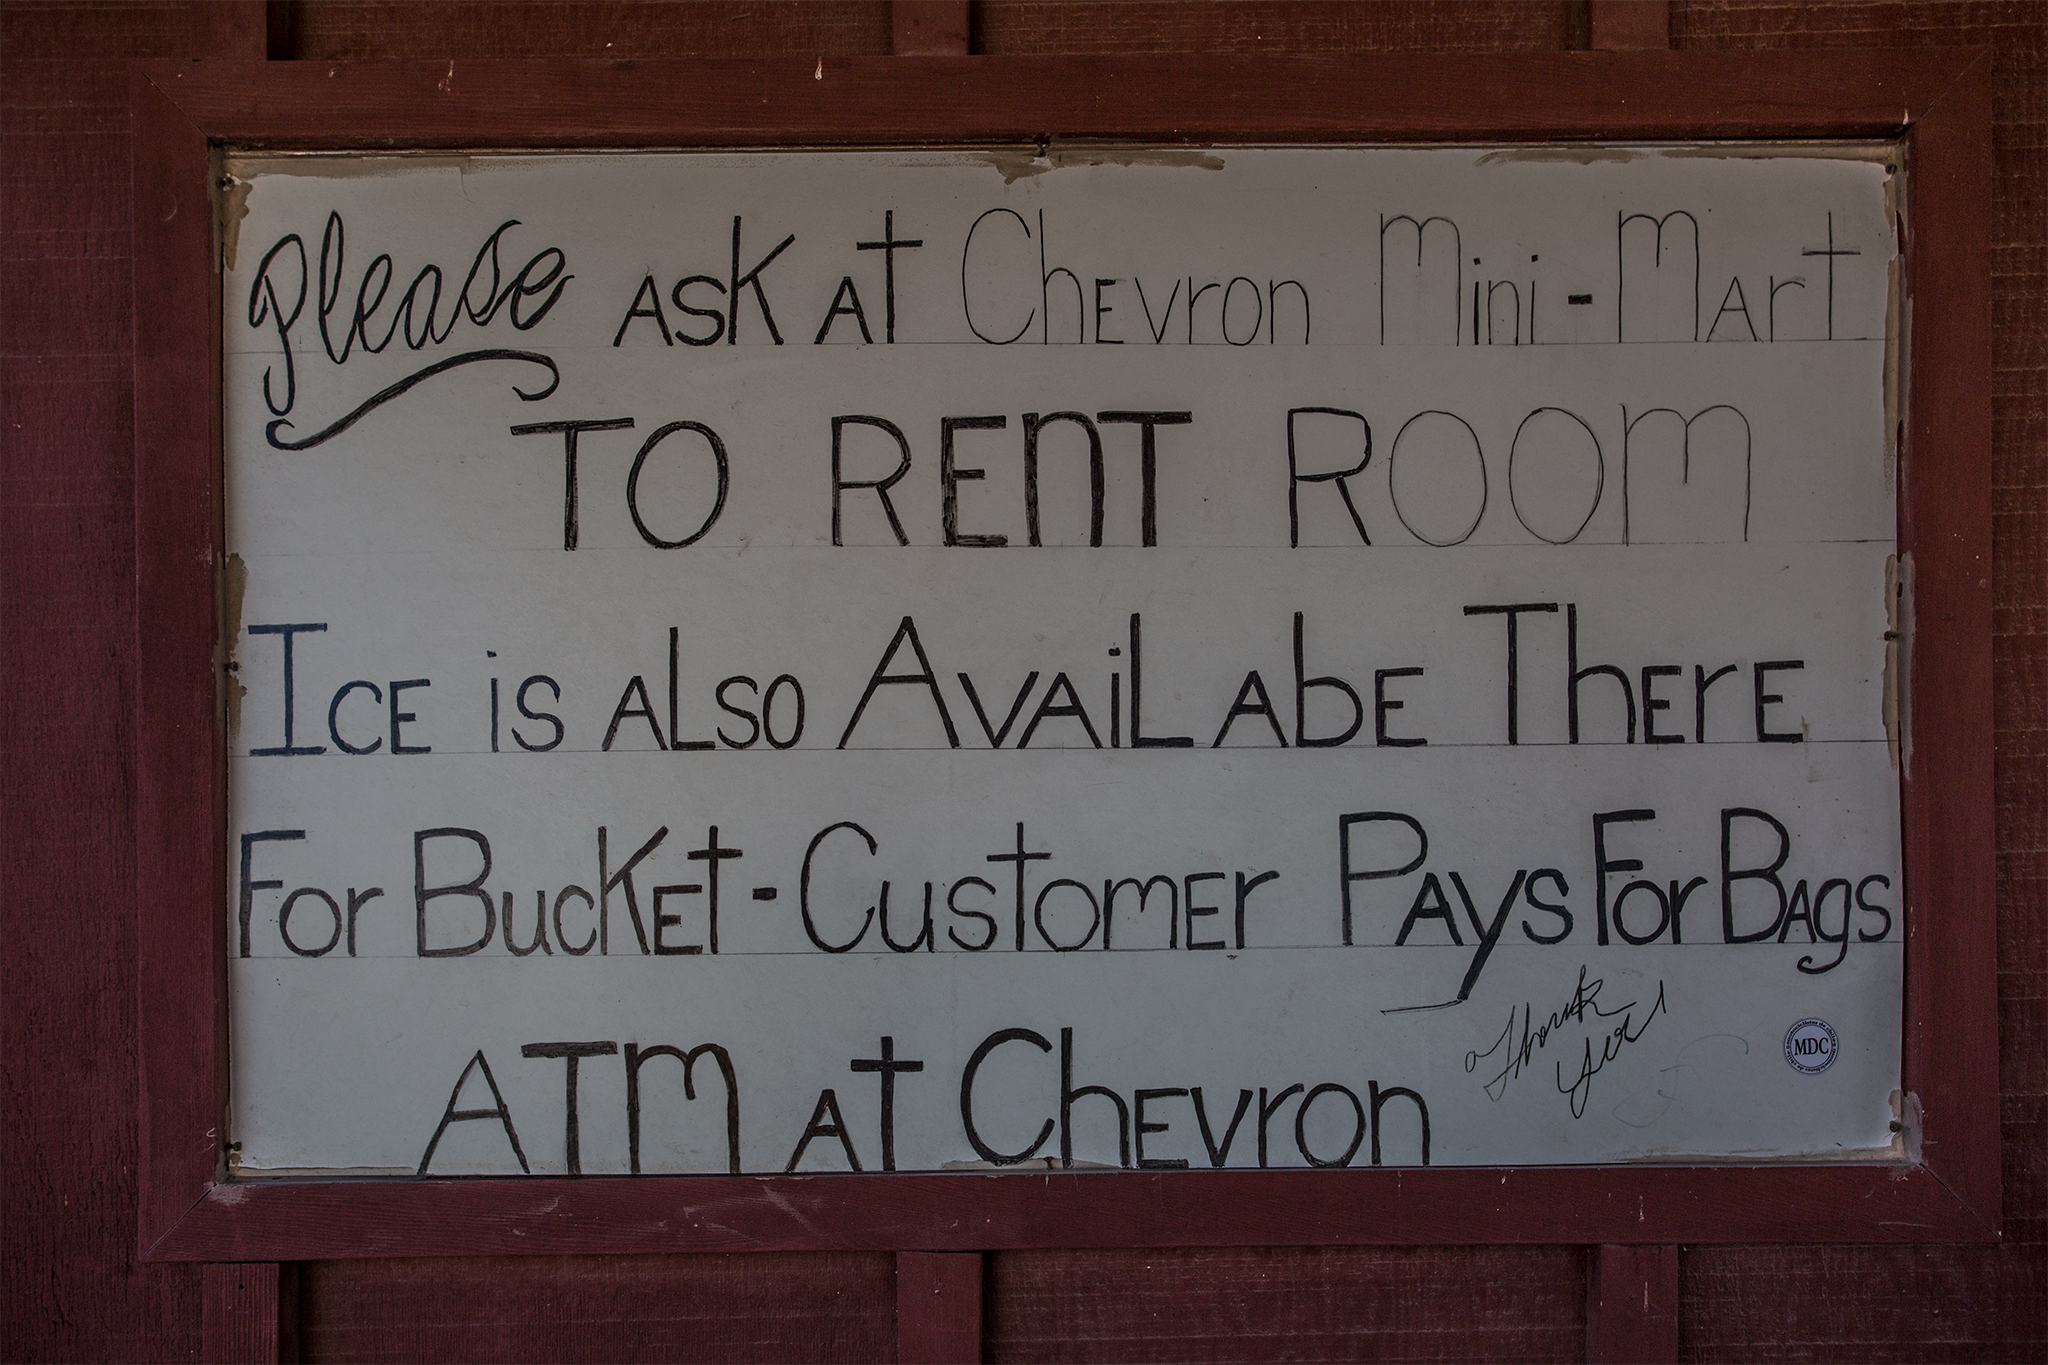 Please ASK At ChEvron Mini-MArt
TO RENT ROOM
ICE is ALSO AVAiLAbE ThErE
For BucKEt - CustomEr PAys For BAgs
ATM At ChEvron
Thank
You
MDC